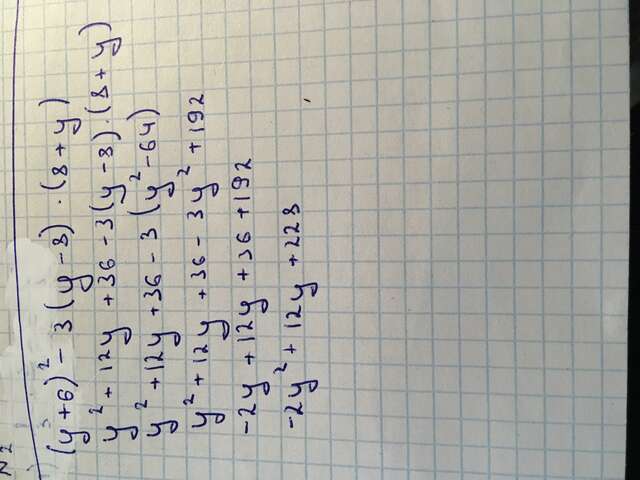 N2
(y+6)² - 3(y-8)·(8+y)
y²+12y+36-3(y-8)·(8+y)
y²+12y+36-3(y²-64)
y²+12y+36-3y²+192
-2y+12y+36+192
-2y²+12y+228